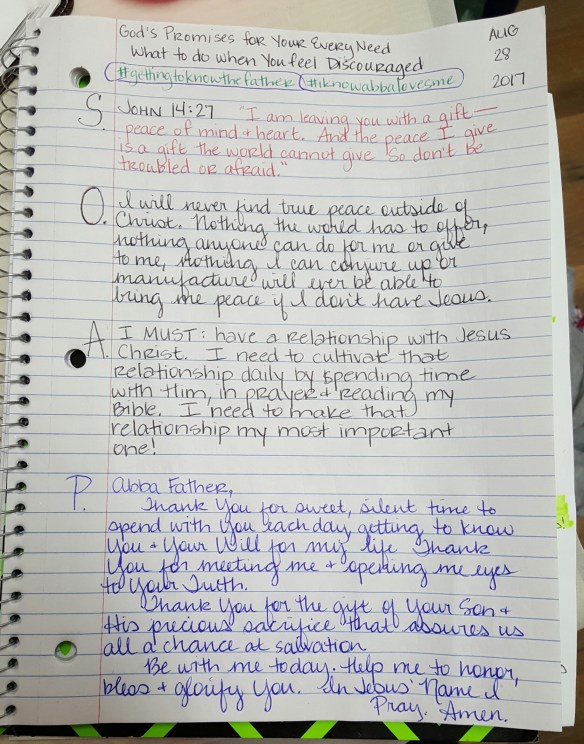 God's Promises for Your Every Need
What to do when you feel Discouraged
#gettingtoknowthefather #iknowabbalovesme
AUG
28
2017
S. JOHN 14:27 "I am leaving you with a gift—
peace of mind + heart. And the peace I give
is a gift the world cannot give. So don't be
troubled or afraid."
O. I will never find true peace outside of
Christ. Nothing the world has to offer,
nothing anyone can do for me or give
to me, nothing I can conjure up or
manufacture will ever be able to
bring me peace if I don't have Jesus.
A. I MUST: have a relationship with Jesus
Christ. I need to cultivate that
relationship daily by spending time
with Him, in prayer + reading my
Bible. I need to make that
relationship my most important
one!
P. Abba Father,
Thank You for sweet, silent time to
spend with You each day, getting to know
You + Your Will for my life. Thank
You for meeting me + opening me eyes
to Your Truth.
Thank You for the gift of Your Son +
His precious sacrifice that assures us
all a chance at salvation.
Be with me today. Help me to honor,
bless + glorify You. In Jesus' Name I
Pray. Amen.